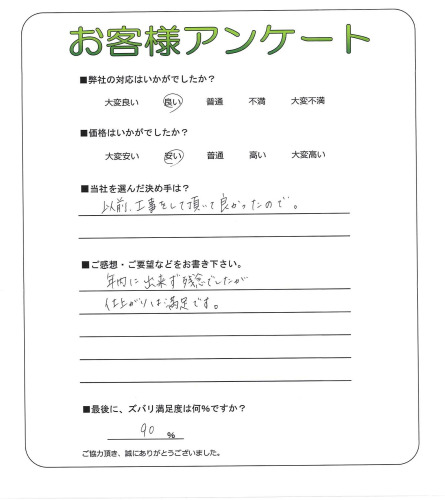 お客様アンケート
■弊社の対応はいかがでしたか？
大変良い 良い 普通 不満 大変不満
■価格はいかがでしたか？
大変安い 安い 普通 高い 大変高い
■当社を選んだ決め手は？
以前、工事をして頂いて良かったので。
■ご感想・ご要望などをお書き下さい。
年内に出来ず残念でしたが
仕上がりは満足です。
■最後に、ズバリ満足度は何%ですか？
90 %
ご協力頂き、誠にありがとうございました。